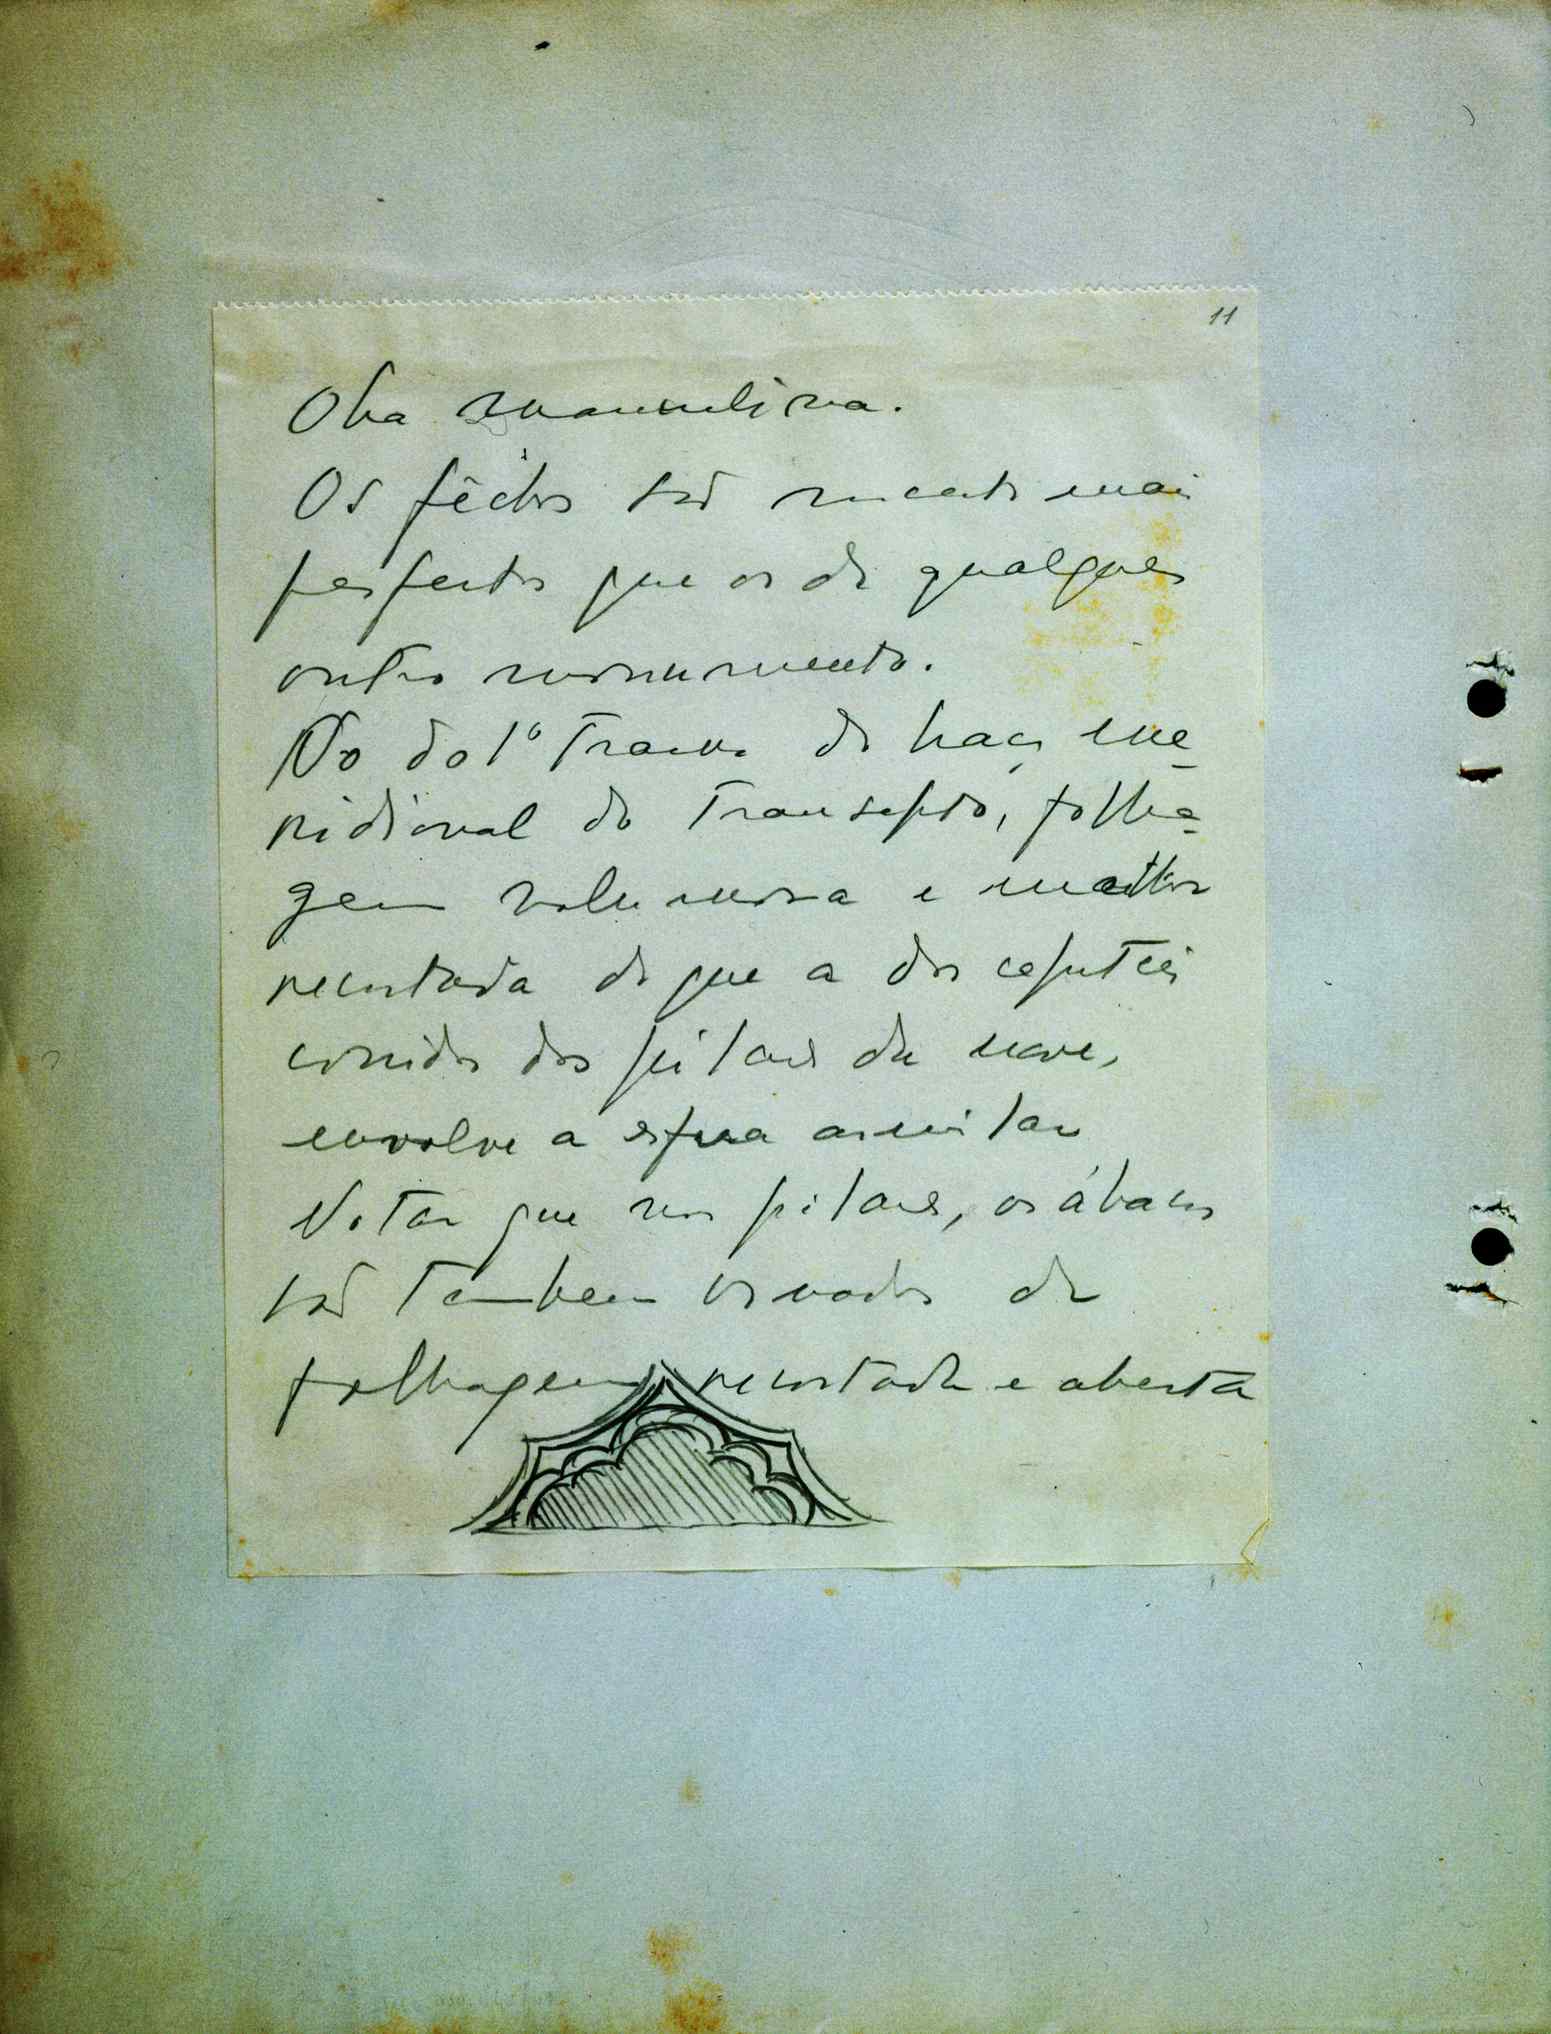 11
Obra manuelina.
Os fêchos são mais
perfeitos que os de qualquer
outro monumento.
No do 1º Tramo do braço me-
ridional do Transepto, folha-
gem volumosa e melhor
recortada do que a dos capiteis
corridos dos pilares da nave,
envolve a esfera armilar
Notar que nos pilares, os ábacos
são Tambem ornados de
folhagem recortada e aberta